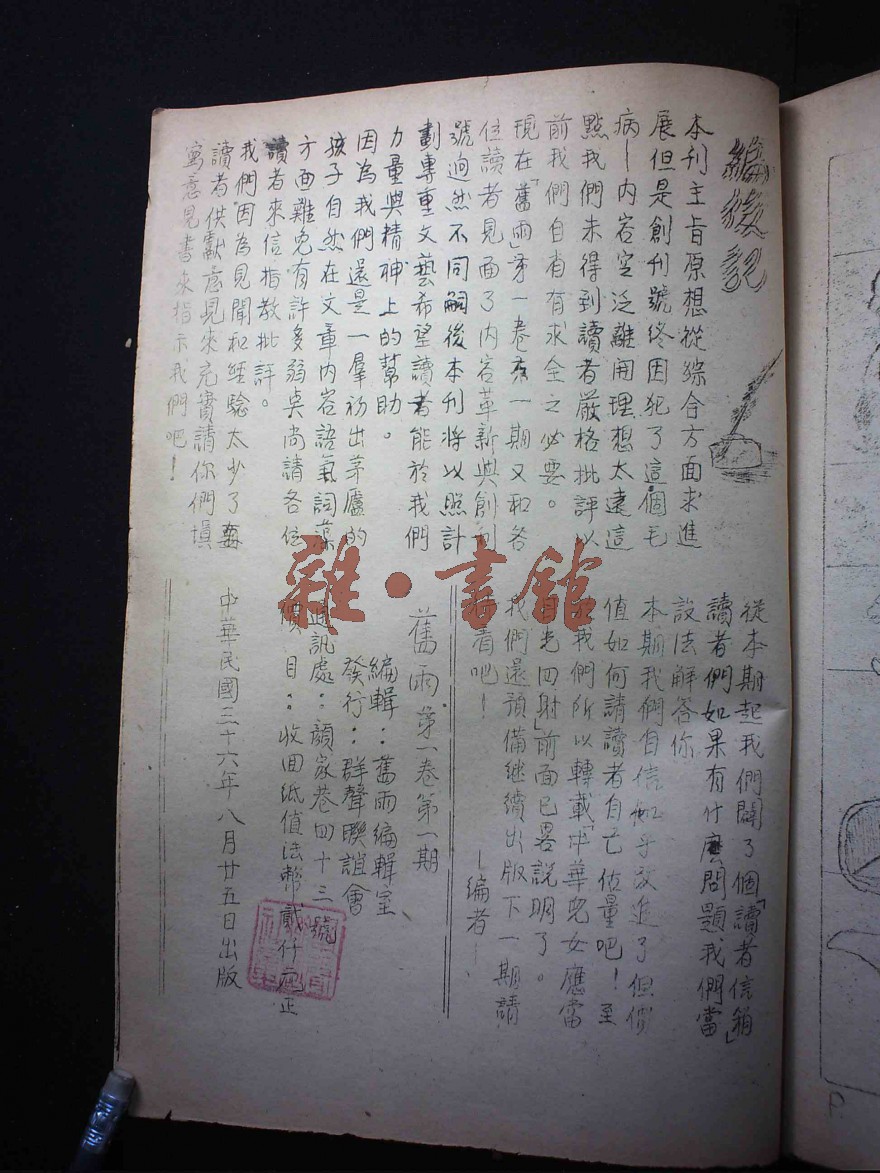 編後說
本刊主旨原想從綜合方面求進
展但是創刊號終因犯了這個毛
病—內容空泛離開理想太遠這
點我們未得到讀者嚴格批評以
前我們自有求全之必要。
現在「舊雨」第一卷第一期又和各
位讀者見面了內容革新與創刊
號迥然不同嗣後本刊將以照計
劃專重文藝希望讀者能於我們
力量與精神上的幫助。
因為我們還是一羣初出茅廬的
孩子自然在文章內容語氣詞藻
方面難免有許多弱點尚請各位
讀者來信指教批評。
我們因為見聞和經驗太少了要
讀者供獻意見來充實請你們填
寫意見書來指示我們吧！
從本期起我們闢了個「讀者信箱」
讀者們如果有什麼問題我們當
設法解答你
本期我們自信似乎改進了但價
值如何請讀者自己估量吧！至
我們所以轉載「中華兒女應當
目光四射」前面已畧說明了。
我們還預備繼續出版下一期請
看吧！
—編者—
舊雨第一卷第一期
編輯：舊雨編輯室
發行：群聲聯誼會
通訊處：顏家巷四十三號
價目：收回紙值法幣貳仟元正
中華民國三十六年八月廿五日出版
雜·書館